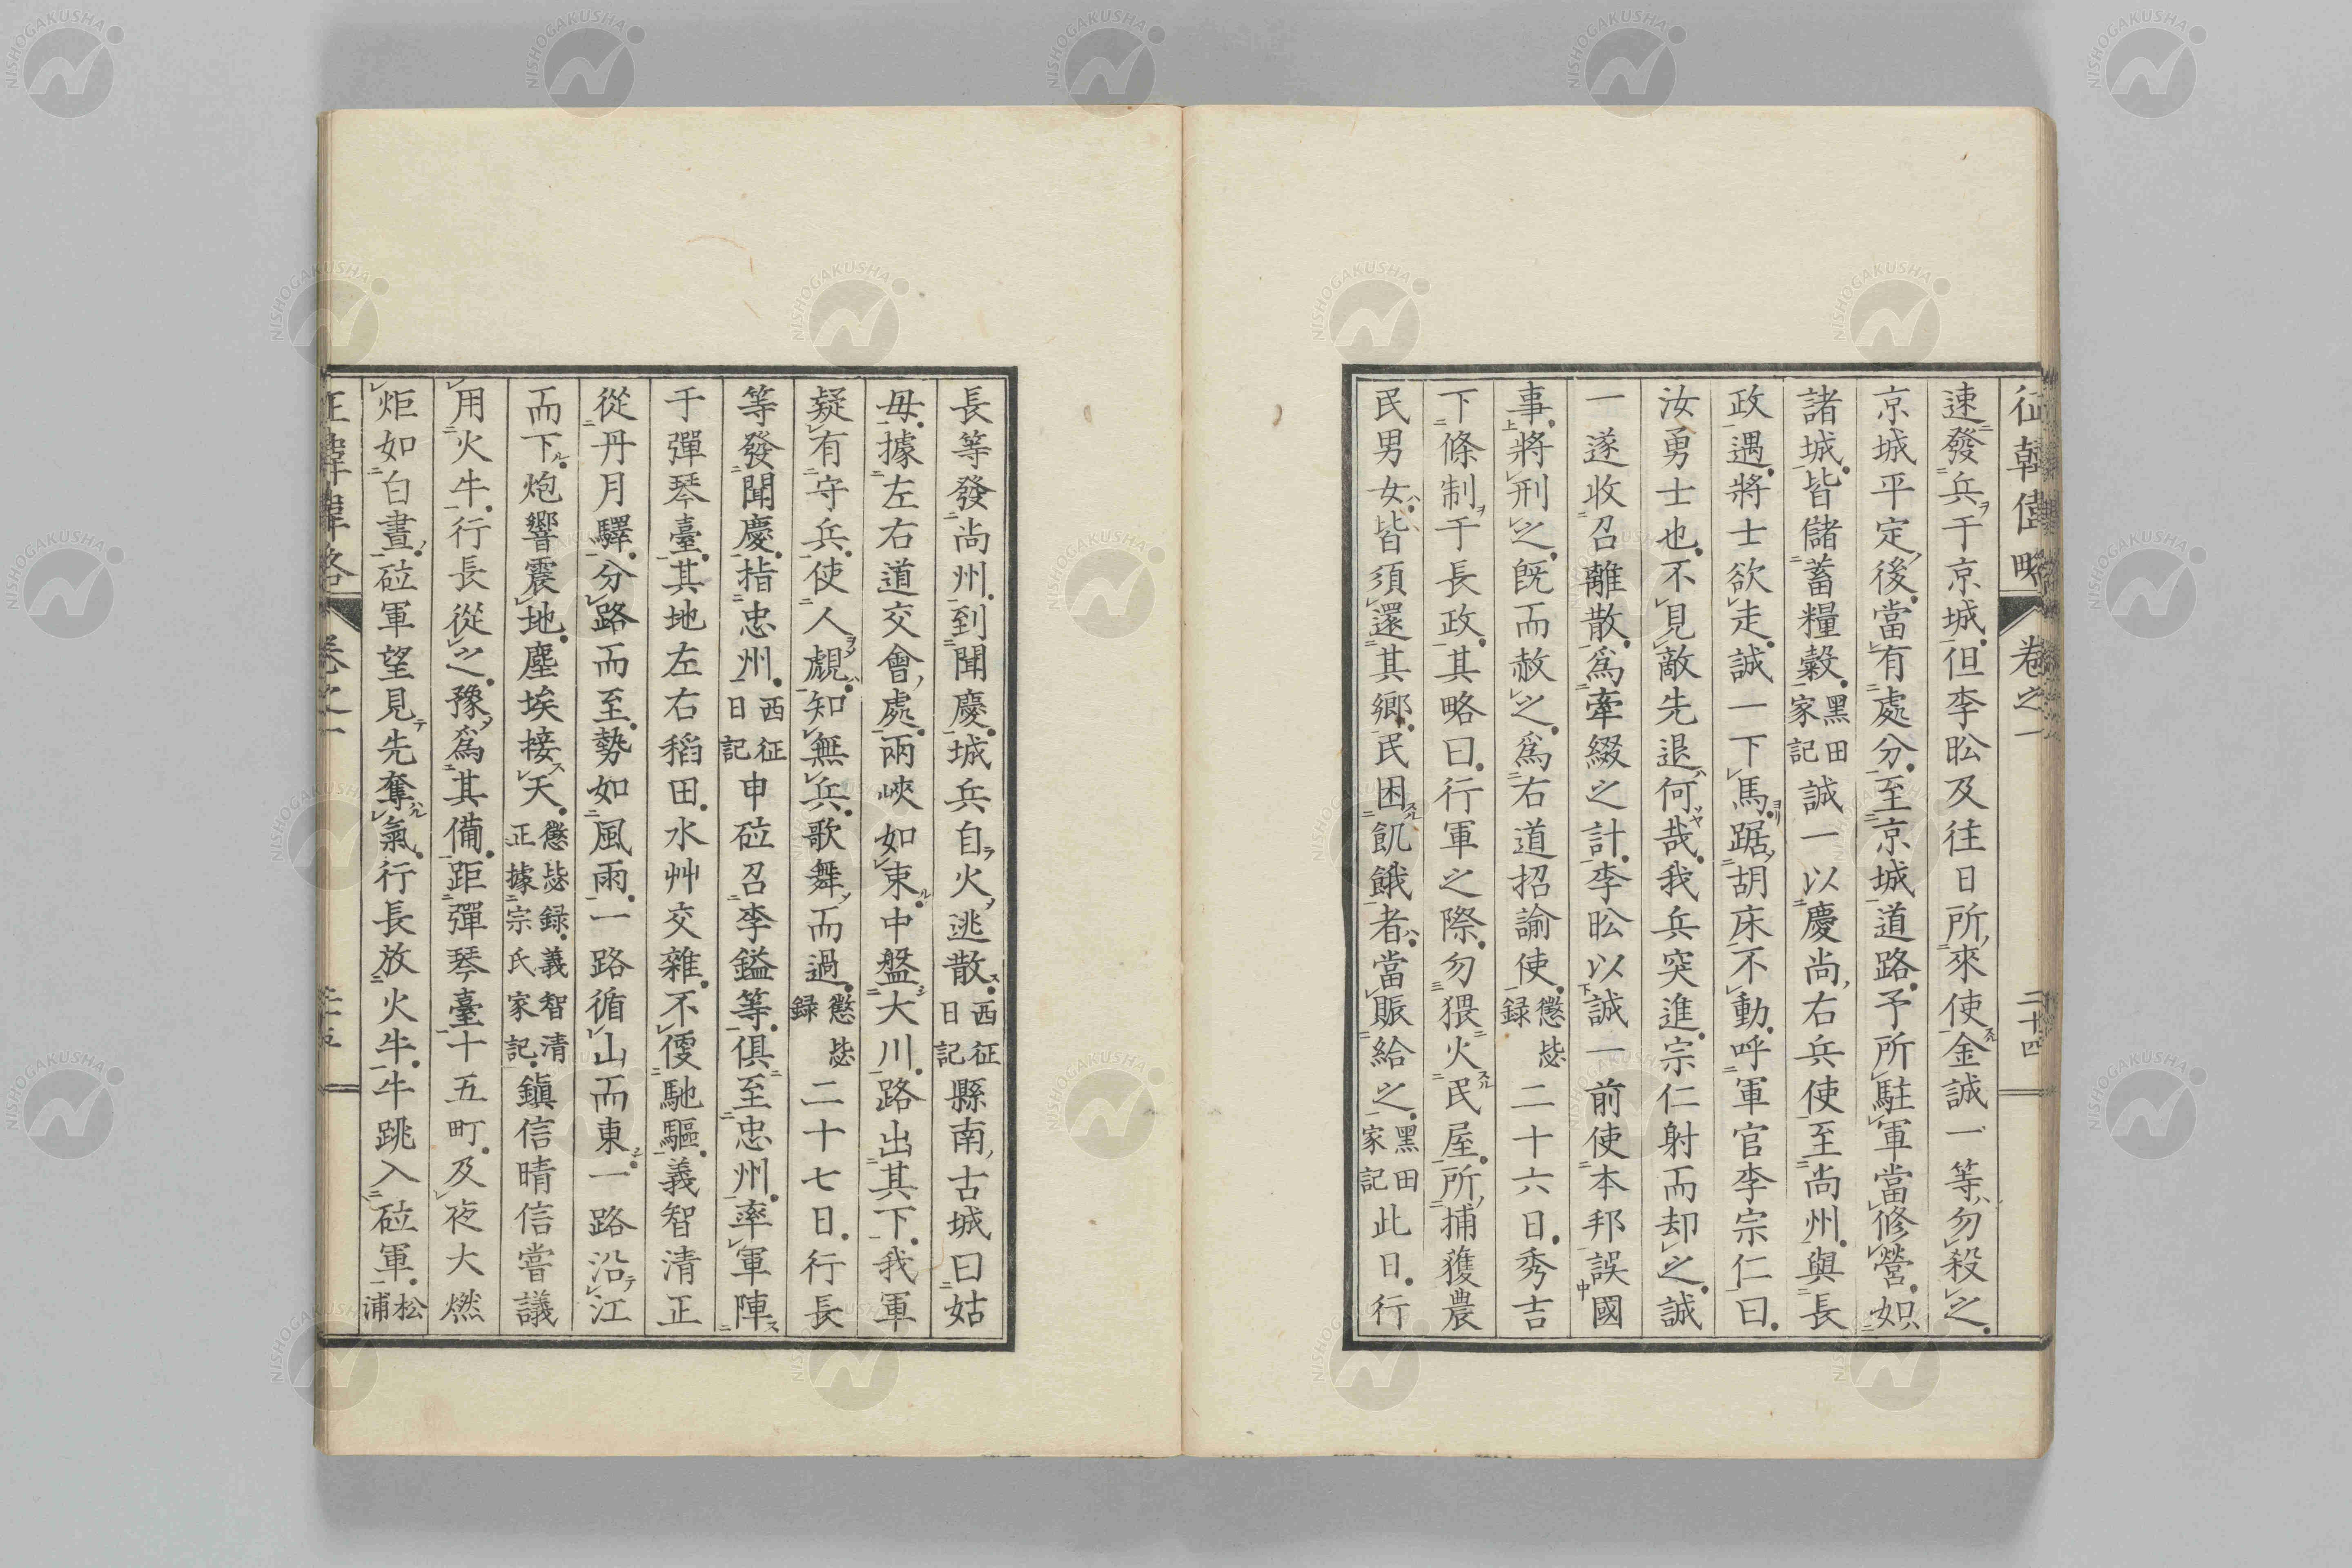 征韓偉略 卷之一 二十四
速發兵于京城但李昖及往日所來使金誠一等勿殺之
京城平定後當有處分至京城道路予所駐軍當修營如
諸城皆儲蓄糧穀黑田家記誠一以慶尚右兵使至尚州與長
政遇將士欲走誠一下馬踞胡床不動呼軍官李宗仁曰
汝勇士也不見敵先退何哉我兵突進宗仁射而却之誠
一遂收召離散爲牽綴之計李昖以誠一前使本邦誤國
事將刑之既而赦之爲右道招諭使懲毖録二十六日秀吉
下條制于長政其略曰行軍之際勿猥火民屋所捕獲農
民男女皆須還其鄉民困飢餓者當賑給之黑田家記此日行
長等發尚州到聞慶城兵自火逃散西征日記縣南古城曰姑
母據左右道交會處兩峽如束中盤大川路出其下我軍
疑有守兵使人覘知無兵歌舞而過懲毖録二十七日行長
等發聞慶指忠州西征日記申砬召李鎰等俱至忠州率軍陣
于彈琴臺其地左右稻田水艸交雜不便馳驅義智清正
從丹月驛分路而至勢如風雨一路循山而東一路沿江
而下炮響震地塵埃接天懲毖録義智清正據宗氏家記鎭信晴信嘗議
用火牛行長從之豫爲其備距彈琴臺十五町及夜大燃
炬如白晝砬軍望見先奪氣行長放火牛牛跳入砬軍松浦
征韓偉略 卷之一
NISHOGAKUSHA